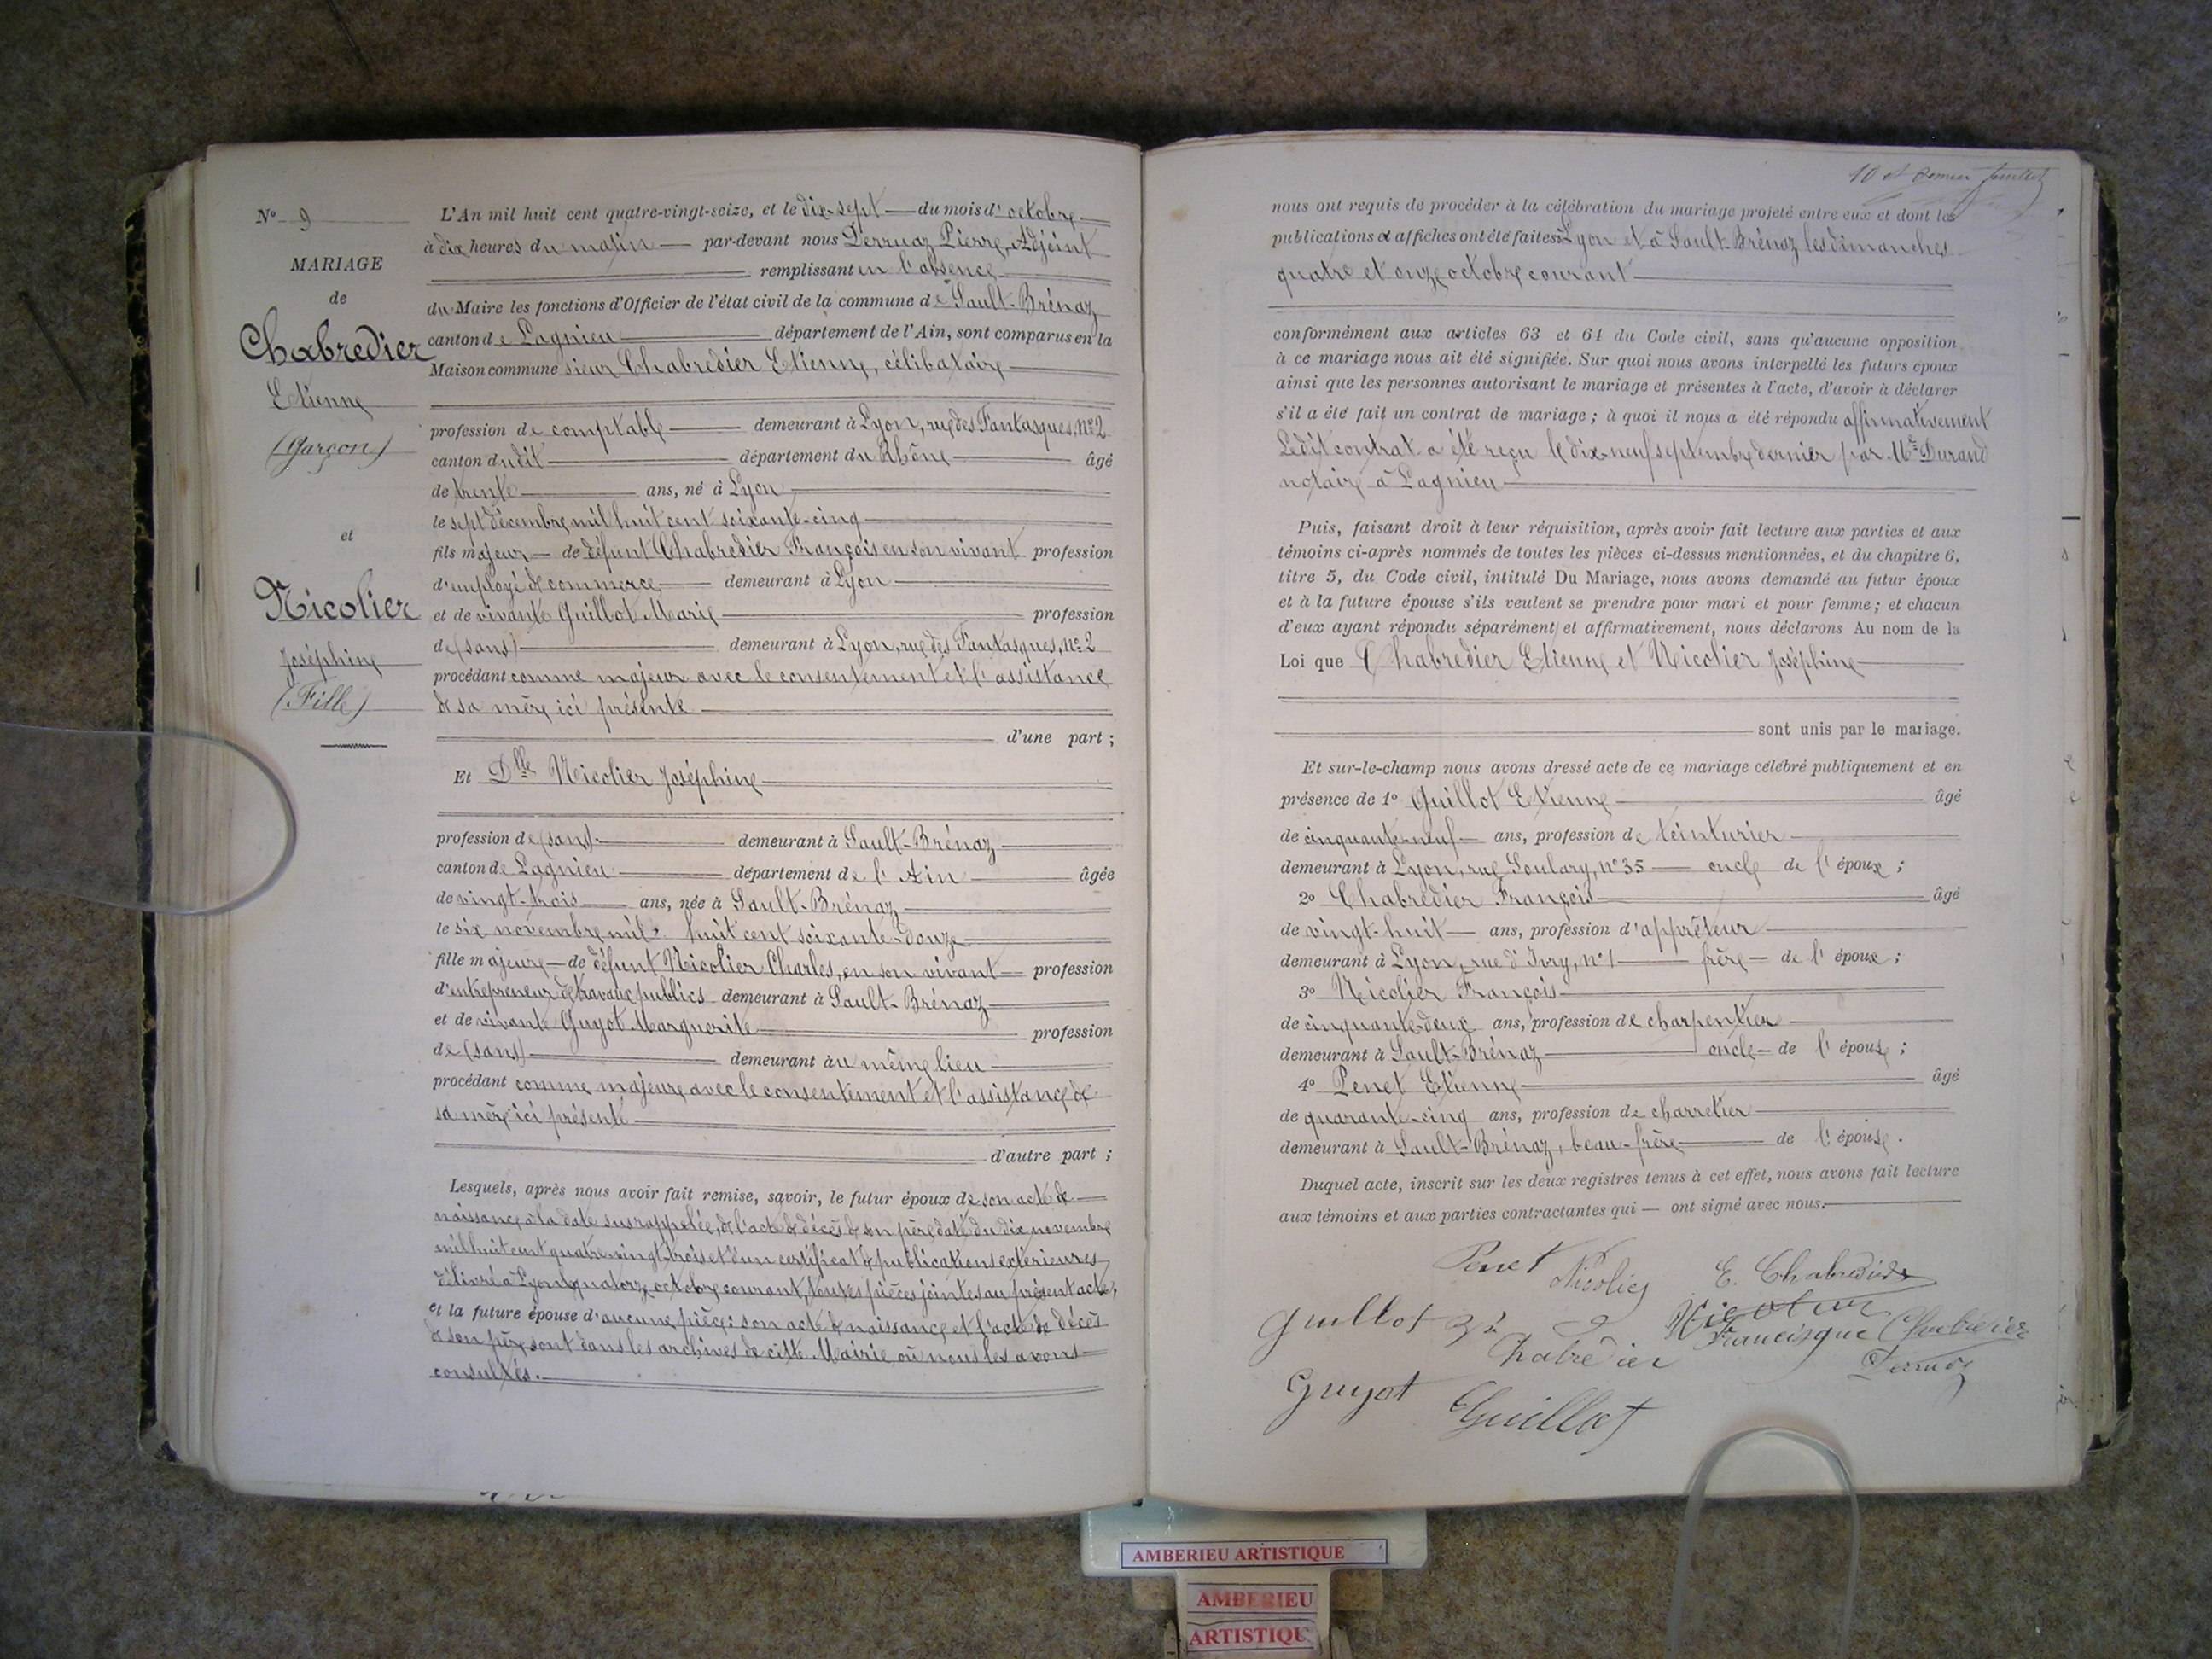 N° 9
MARIAGE
de
Chabredier
Etienne
(Garçon)
et
Nicolier
Joséphine
(Fille)
L'An mil huit cent quatre-vingt-seize, et le dix-sept du mois d'octobre
à dix heures du matin par-devant nous Derruaz Pierre, Adjoint
remplissant en l'absence
du Maire les fonctions d'Officier de l'état civil de la commune de Sault-Brénaz
canton de Lagnieu département de l'Ain, sont comparus en la
Maison commune sieur Chabredier Etienne, célibataire
profession de comptable demeurant à Lyon, rue des Fantasques, N° 2
canton dudit département du Rhône âgé
de trente ans, né à Lyon,
le sept décembre mil huit cent soixante-cinq
fils majeur de défunt Chabredier François en son vivant profession
d'employé de commerce demeurant à Lyon
et de vivante Guillot Marie profession
de (sans) demeurant à Lyon, rue des Fantasques, N° 2
procédant comme majeur avec le consentement et l'assistance
de sa mère ici présente
d'une part ;
Et Dlle Nicolier Joséphine
profession de (sans). demeurant à Sault-Brénaz
canton de Lagnieu département de l'Ain âgée
de vingt-trois ans, née à Sault-Brénaz
le six novembre mil huit cent soixante-douze
fille majeure de défunt Nicolier Charles, en son vivant profession
d'entrepreneur de travaux publics demeurant à Sault-Brénaz
et de vivante Guyot Marguerite profession
de (sans) demeurant au même lieu
procédant comme majeure avec le consentement et l'assistance de
sa mère ici présente
d'autre part ;
Lesquels, après nous avoir fait remise, savoir, le futur époux de son acte de
naissance à la date susrappelée, de l'acte de décès de son père daté du dix novembre
mil huit cent quatre vingt trois et d'un certificat de publications extérieures
délivré à Lyon le quatorze octobre courant, toutes pièces jointes au présent acte,
et la future épouse d'aucune pièce : son acte de naissance et l'acte de décès
de son père sont dans les archives de cette Mairie où nous les avons
consultés.
10 et dernier feuillet
nous ont requis de procéder à la célébration du mariage projeté entre eux et dont les
publications et affiches ont été faites à Lyon et à Sault-Brénaz les dimanches
quatre et onze octobre courant
conformément aux articles 63 et 64 du Code civil, sans qu'aucune opposition
à ce mariage nous ait été signifiée. Sur quoi nous avons interpellé les futurs époux
ainsi que les personnes autorisant le mariage et présentes à l'acte, d'avoir à déclarer
s'il a été fait un contrat de mariage ; à quoi il nous a été répondu affirmativement
Ledit contrat a été reçu le dix-neuf septembre dernier par Me Durand
notaire à Lagnieu
Puis, faisant droit à leur réquisition, après avoir fait lecture aux parties et aux
témoins ci-après nommés de toutes les pièces ci-dessus mentionnées, et du chapitre 6,
titre 5, du Code civil, intitulé Du Mariage, nous avons demandé au futur époux
et à la future épouse s'ils veulent se prendre pour mari et pour femme ; et chacun
d'eux ayant répondu séparément et affirmativement, nous déclarons Au nom de la
Loi que Chabredier Etienne et Nicolier Joséphine
sont unis par le mariage.
Et sur-le-champ nous avons dressé acte de ce mariage célébré publiquement et en
présence de 1° Guillot Etienne âgé
de cinquante-neuf ans, profession de teinturier
demeurant à Lyon, rue Soulary, n° 35 oncle de l'époux ;
2° Chabredier François âgé
de vingt-huit ans, profession d'apprêteur
demeurant à Lyon, rue d'Ivry, n° 1 frère de l'époux ;
3° Nicolier François
de cinquante-deux ans, profession de charpentier
demeurant à Sault-Brénaz oncle de l'épouse ;
4° Penet Etienne âgé
de quarante-cinq ans, profession de charretier
demeurant à Sault-Brénaz, beau-frère de l'épouse.
Duquel acte, inscrit sur les deux registres tenus à cet effet, nous avons fait lecture
aux témoins et aux parties contractantes qui ont signé avec nous.
Penet Nicolier E. Chabredier
Guillot Nicolier
Chabredier Francisque Chabredier
Derruaz
Guyot Guillot
AMBERIEU ARTISTIQUE
AMBERIEU
ARTISTIQU